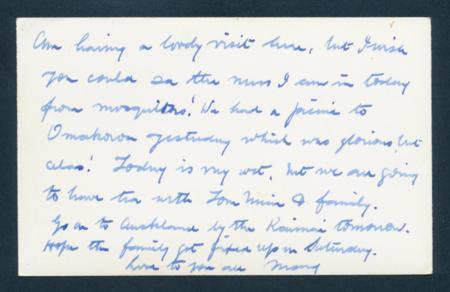 Am having a lovely visit here, but I wish
you could see the mess I am in today
from mosquitoes! We had a picnic to
Omokoroa yesterday which was glorious, but
alas! Today is very wet, but we are going
to have tea with Tom Muir & family.
Go on to Auckland by the Kaimai tomorrow.
Hope the family got fixed up on Saturday.
Love to you all Mary